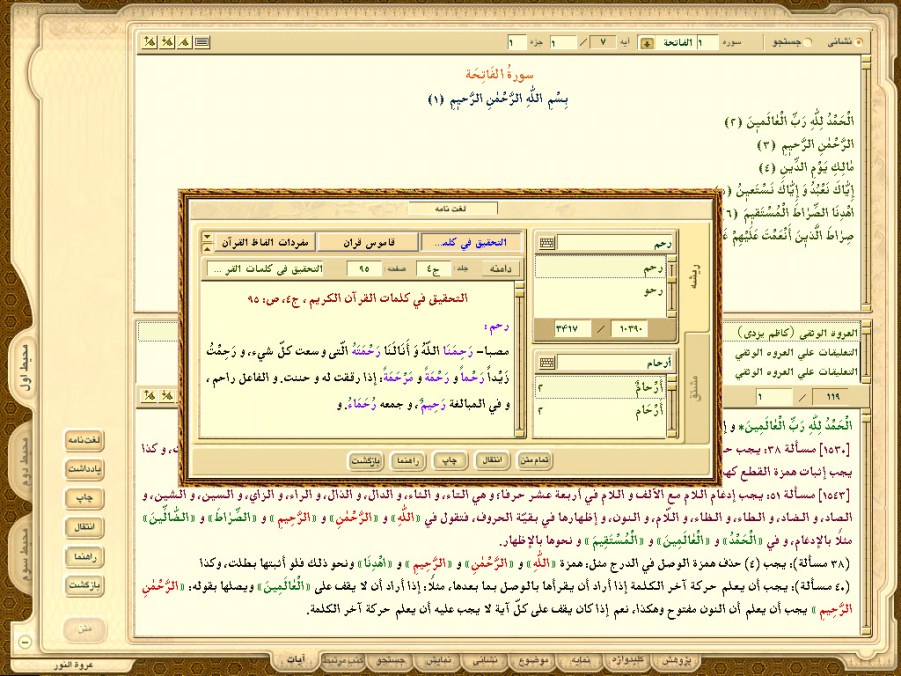 نشانی
جستجو
سوره ١ الفاتحة
آیه ٧ / ١
جزء ١
سورةُ الفَاتِحَة
بِسْمِ اللّٰهِ الرَّحْمٰنِ الرَّحیمِ (١)
الْحَمْدُ لِلّٰهِ رَبِّ الْعٰالَمینَ (٢)
الرَّحْمٰنِ الرَّحیمِ (٣)
مٰالِكِ یَوْمِ الدِّینِ (٤)
إِیّٰاكَ نَعْبُدُ وَ إِیّٰاكَ نَسْتَعینُ
اهْدِنَا الصِّرٰاطَ الْمُسْتَقیمَ (٦
صِرٰاطَ الَّذینَ أَنْعَمْتَ عَلَیْهِمْ
لغت نامه
ریشه
مشتق
رحم
رحم
رحو
١٠٣٩٠ / ٣٤١٧
أرحام
أَرْحَامٌ ٢
أَرْحَام ٢
التحقیق في کلمـ...
قاموس قرآن
مفردات الفاظ القرآن
دامنه
جلد ج٤
صفحه ٩٥
التحقیق في کلمات القر ...
التحقیق في کلمات القرآن الکریم ، ج٤، ص: ٩٥
رحم :
مصبا- رَحِمَنَا اللّهُ وَ أَنَالَنَا رَحْمَتَهُ الّتی وسعت کلّ شيء، و رَحِمْتُ
زَیْداً رُحْماً و رَحْمَةً و مَرْحَمَةً: إذا رققت له و حننت. و الفاعل راحم ،
و في المبالغة رَحِیمٌ، و جمعه رُحَمَاءُ. و
تمام متن
انتقال
چاپ
راهنما
بازگشت
العروه الوثقی (کاظم یزدی)
التعلیقات علي العروه الوثقی
التعلیقات علي العروه الوثقی
١١٩ / ١
الْحَمْدُ لِلّٰهِ رَبِّ الْعٰالَمینَ* و
[١٥٣٠] مسألة ٣٨: یجب
ت، و کذا
یجب إثبات همزة القطع
[١٥٤٣] مسألة ٥١: یجب إدغام اللام مع الألف و اللام في أربعة عشر حرفا؛ و هي التاء، و الثاء، و الدال، و الذال، و الراء، و الزاي، و السین، و الشین، و
الصاد، و الضاد، و الطاء، و الظاء، و اللّام، و النون، و إظهارها في بقیّة الحروف، فتقول في «اللّٰهِ» و «الرَّحْمٰنِ» و «الرَّحیمِ» و «الصِّرٰاطَ» و «الضّٰالِّینَ»
مثلًا بالإدغام، و في «الْحَمْدُ» و «الْعٰالَمینَ» و «الْمُسْتَقیمَ» و نحوها بالإظهار.
(٣٨ مسألة): یجب (٤) حذف همزة الوصل في الدرج مثل: همزة «اللّٰهِ» و «الرَّحْمٰنِ» و «الرَّحیمِ» و «اهْدِنَا» ونحو ذلك فلو أثبتها بطلت، وکذا
(٤٠ مسألة): یجب أن یعلم حرکة آخر الکلمة إذا أراد أن یقرأها بالوصل بما بعدها، مثلًا: إذا أراد أن لا یقف علی «الْعٰالَمینَ» ویصلها بقوله: «الرَّحْمٰنِ
الرَّحیمِ» یجب أن یعلم أن النون مفتوح وهکذا، نعم إذا کان یقف علی کلّ آیة لا یجب علیه أن یعلم حرکة آخر الکلمة.
محیط اول
محیط دوم
محیط سوم
لغت نامه
یادداشت
چاپ
انتقال
راهنما
بازگشت
متن
عروة النور
پژوهش
کلیدواژه
نمایه
موضوع
نشانی
نمایش
جستجو
کتب مرتبط
آیات